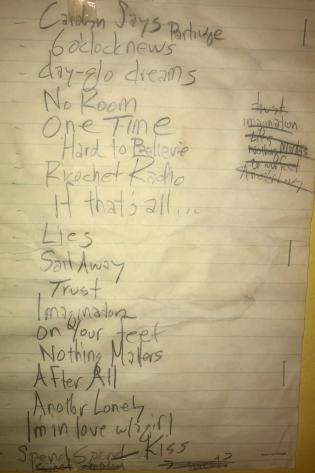 Carolyn Says Partridge
6 o'clock news
day-glo dreams
No Room
One Time
Hard to Believe
Ricochet Radio
If that's all...
Lies
Sail Away
Trust
Imagination
on your feet
Nothing Matters
After All
Another Lonely
I'm in love w/ girl
Spend Spend Kiss
trust
imagination
Nothing Matters